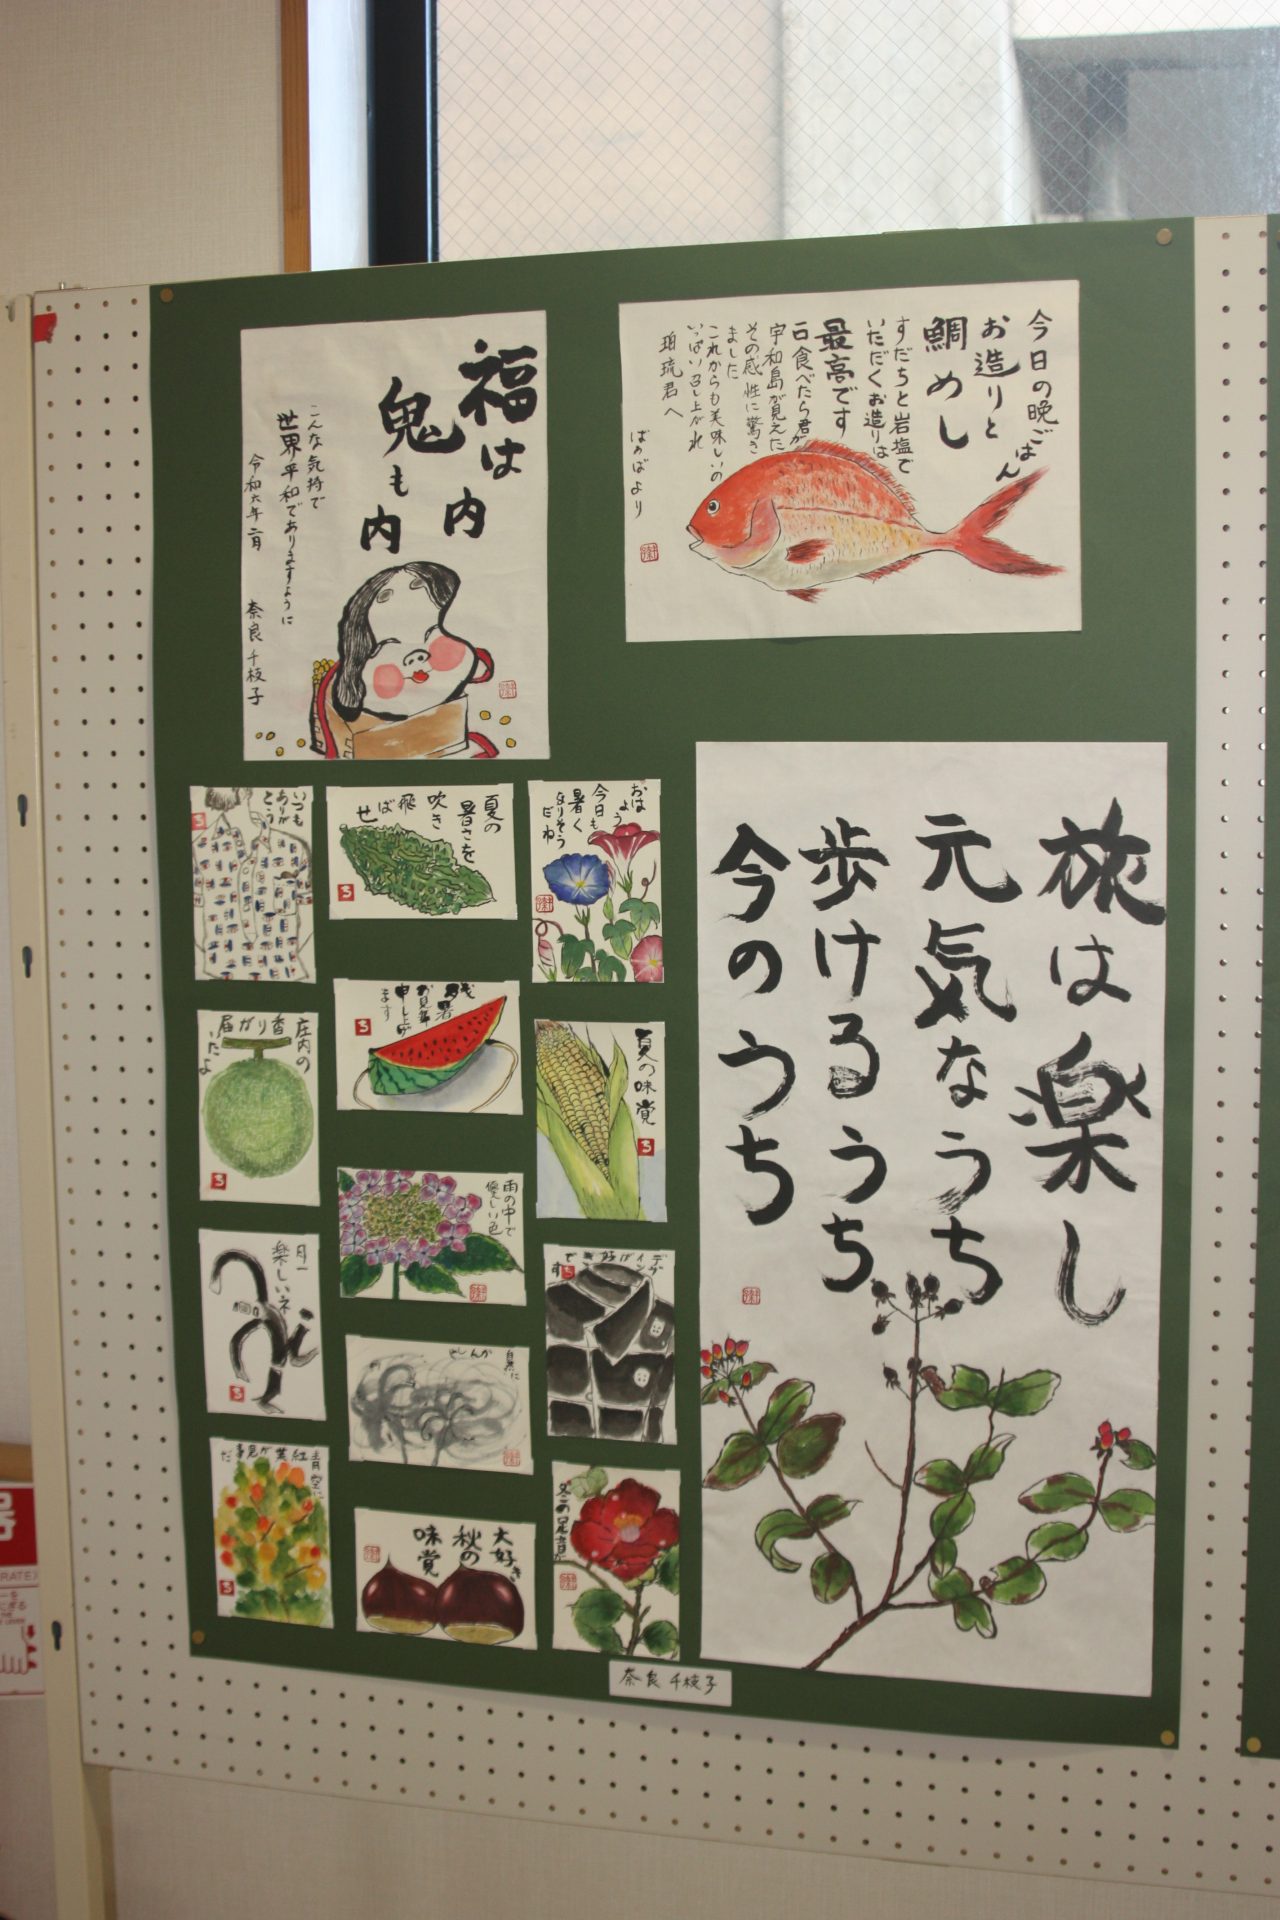 福は
内
鬼も
内
こんな気持で
世界平和でありますように
令和六年二月 奈良千枝子
今日の晩ごはん
お造りと
鯛めし
すだちと岩塩で
いただくお造りは
最高です
一口食べたら君が
宇和島が見えた
その感性に驚き
ました
これからも美味しいの
いっぱい召し上がれ
珀琉君へ
ばぁばより
旅は楽し
元気なうち
歩けるうち
今のうち
いつも
ありが
とう
夏の
暑さを
吹き
飛
ばせ
おはよう
今日も
暑く
なりそう
だね
庄内の
香りが届
いたよ
お見舞
申し上げ
ます
夏の味覚
月一
楽しい
雨の中で
優しい色
デザ
インが好き
です
自然に
青空に
紅葉が見事
だ
大好き
秋の
味覚
冬の
奈良千枝子